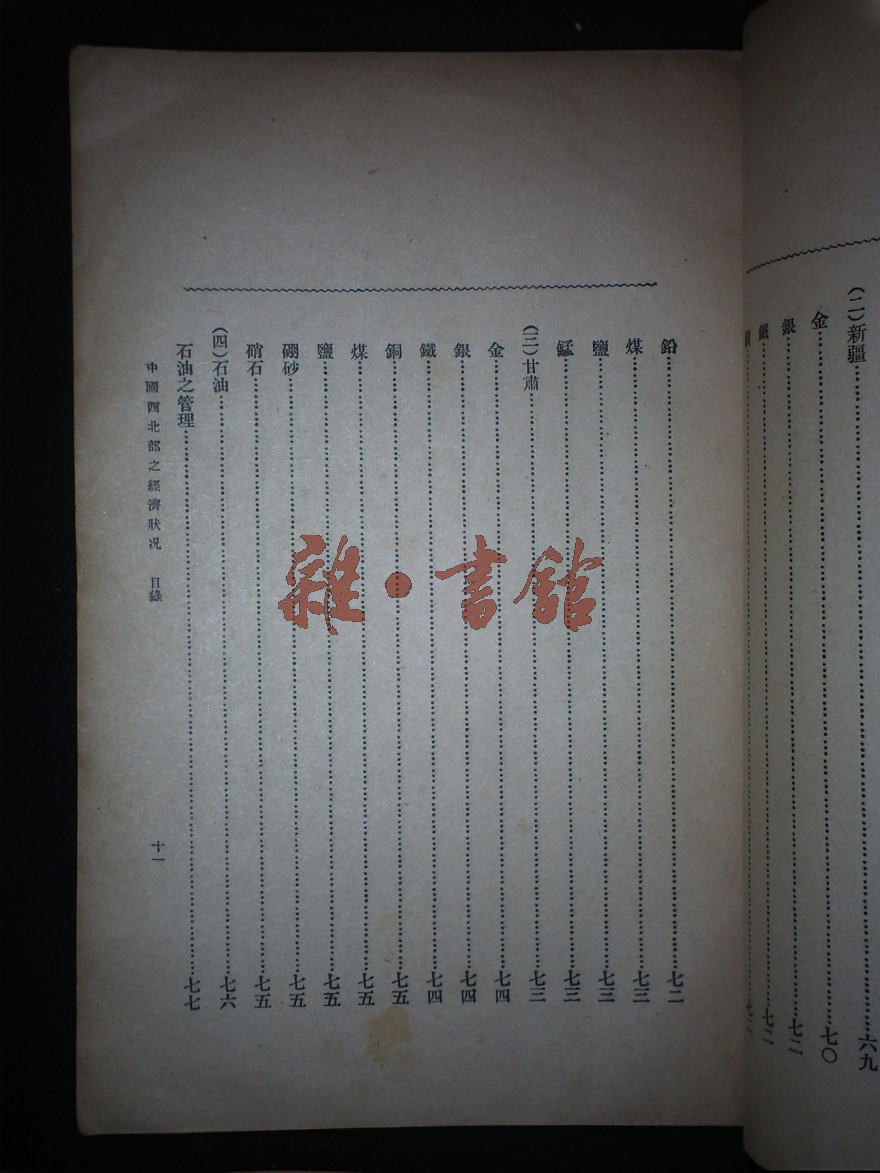 (二)新疆……六九
金……七〇
銀……七二
鐵……七二
鉛……七二
煤……七三
鹽……七三
錳……七三
(三)甘肅……七三
金……七四
銀……七四
鐵……七四
銅……七五
煤……七五
鹽……七五
硼砂……七五
硝石……七五
(四)石油……七六
石油之管理……七七
中國西北部之經濟狀况 目錄 十一
雜·書館